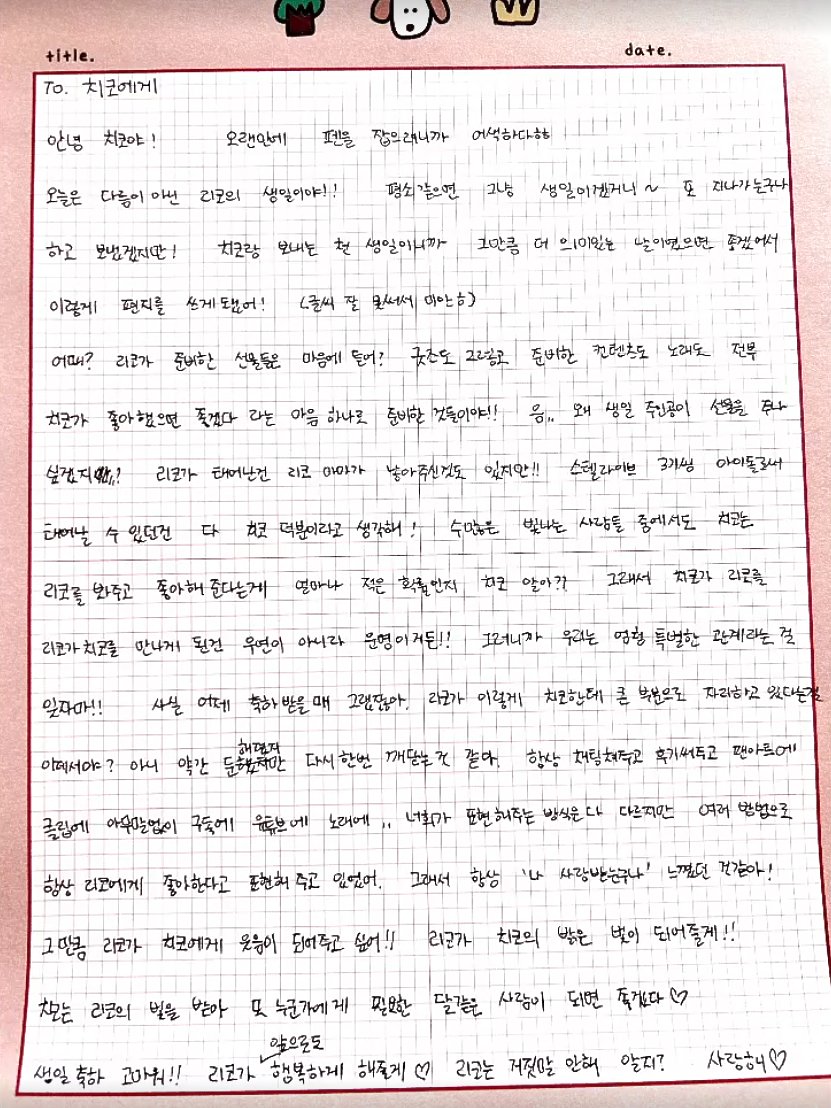 title. date.
To. 치코에게
안녕 치코야! 오랜만에 펜을 잡으려니까 어색하다ㅎㅎ
오늘은 다름이 아닌 리코의 생일이야!! 평소같으면 그냥 생일이겠거니~ 또 지나가는구나
하고 보냈겠지만! 치코랑 보내는 첫 생일이니까 그만큼 더 의미있는 날이였으면 좋겠어서
이렇게 편지를 쓰게 됐어! (글씨 잘 못써서 미안ㅎ)
어때? 리코가 준비한 선물들은 마음에 들어? 굿즈도 그렇고 준비한 컨텐츠도 노래도 전부
치코가 좋아했으면 좋겠다 라는 마음 하나로 준비한 것들이야!! 음,, 왜 생일 주인공이 선물을 주나
싶겠지만,,? 리코가 태어난건 리코 마마가 낳아주신것도 있지만!! 스텔라이브 3기생 아이돌로써
태어날 수 있던건 다 치코 덕분이라고 생각해! 수많은 빛나는 사람들 중에서도 치코는
리코를 봐주고 좋아해 준다는게 얼마나 적은 확률인지 치코 알아?? 그래서 치코가 리코를
리코가 치코를 만나게 된건 우연이 아니라 운명이거든!! 그러니까 우리는 엄청 특별한 관계라는 걸
잊지마!! 사실 어제 축하 받을 때 그랬잖아. 리코가 이렇게 치코한테 큰 부분으로 자리하고 있다는걸
이제서야? 아니 약간 둔해졌지만 다시 한번 깨닫는 것 같아. 항상 채팅쳐주고 후기써주고 팬아트에
클립에 아무말없이 구독에 유튜브에 노래에 ,, 너희가 표현해주는 방식은 다 다르지만 여러 방법으로
항상 리코에게 좋아한다고 표현해 주고 있었어. 그래서 항상 '나 사랑받는구나' 느꼈던 것같아!
그만큼 리코가 치코에게 웃음이 되어주고 싶어!! 리코가 치코의 밝은 빛이 되어줄게!!
치코는 리코의 빛을 받아 또 누군가에게 필요한 달같은 사람이 되면 좋겠다♡
생일 축하 고마워!! 리코가 앞으로도 행복하게 해줄게♡ 리코는 거짓말 안해 알지? 사랑해♡